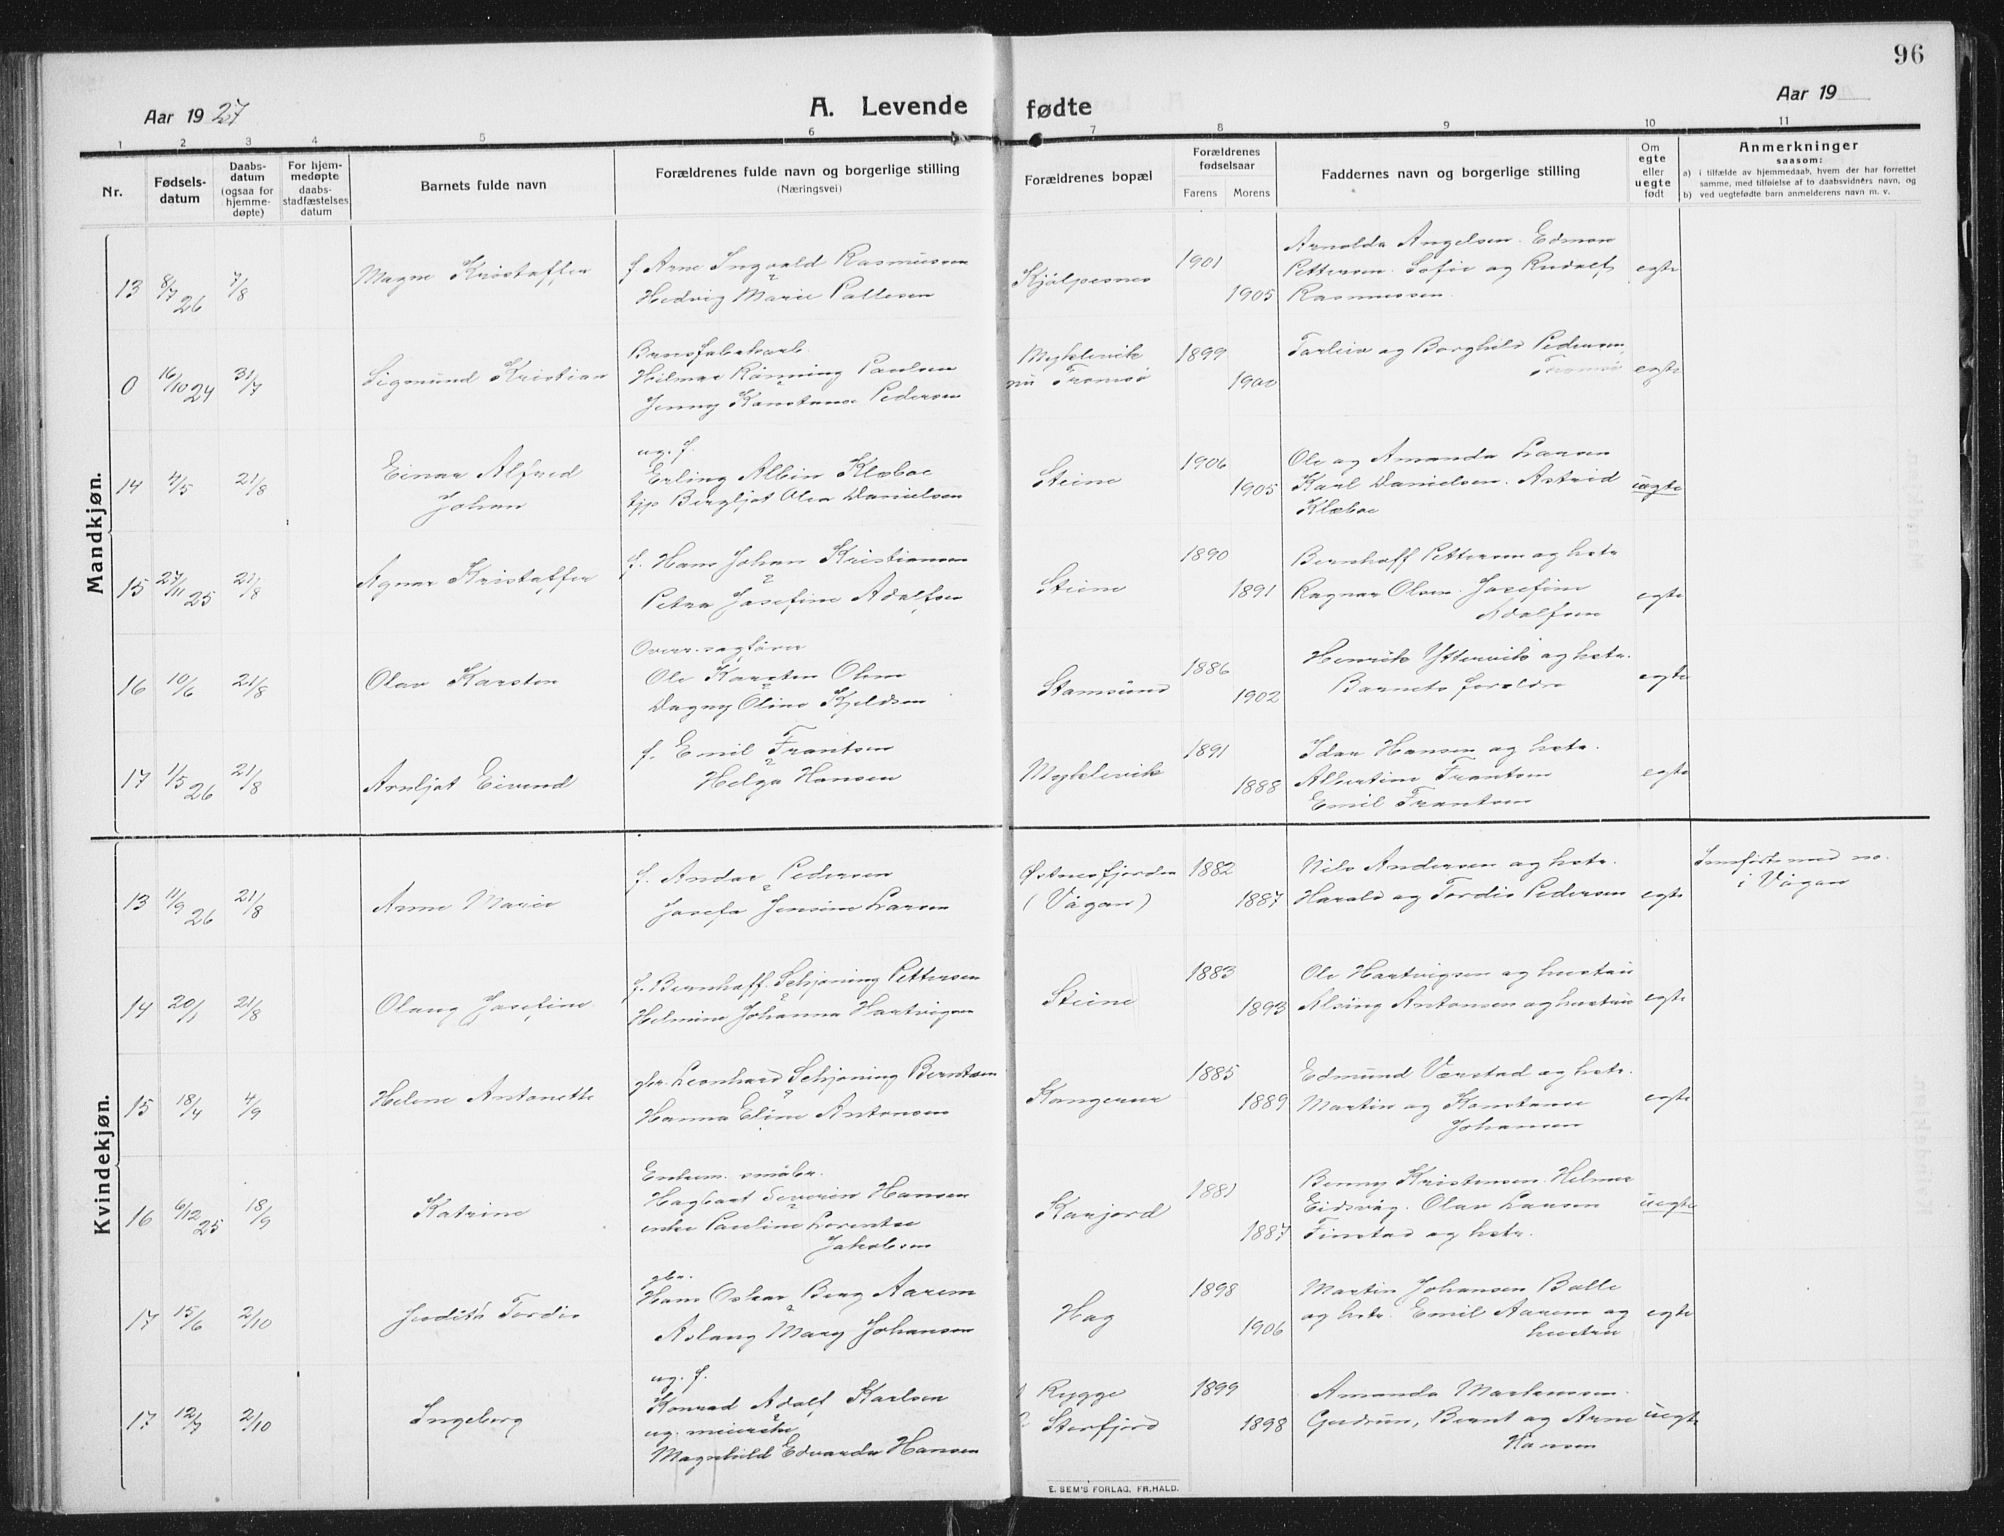 96
Aar 1927
A. Levende fødte
Aar 19
1 2 3 4 5 6 7 8 9 10 11
Nr.
Fødsels-
datum
Daabs-
datum
(ogsaa for
hjemme-
døpte)
For hjem-
medøpte
daabs-
stadfæstelses
datum
Barnets fulde navn
Forældrenes fulde navn og borgerlige stilling
(Næringsvei)
Forældrenes bopæl
Forældrenes
fødselsaar
Farens Morens
Faddernes navn og borgerlige stilling
Om
egte
eller
uegte
født
Anmerkninger
saasom:
a) i tilfælde av hjemmedaab, hvem der har forrettet
samme, med tilføielse af to daabsvidners navn, og
b) ved uegtefødte barn anmelderens navn m. v.
Mandkjøn.
13 8/7 26 7/8
Magne Kristoffer
f Arne Ingvald Rasmussen
Hedvig Marie Pallesen
Kjålpesnes
1901
1905
Arnolda Angelsen. Edmon
Pettersen. Sofie og Rudolf
Rasmussen.
egte
0 16/10 24 31/7
Sigmund Kristian
Hilmar Rønning Paulsen
Jenny Konstanse Pedersen
Myklevik
nu Tromsø
1899
1900
Torleiv og Borghild Pedersen,
Tromsø
egte
14 4/5 21/8
Einar Alfred
Johan
ug. f.
Erling Albin Klæboe
tjp Bergljot Olea Danielsen
Steine
1906
1905
Ole og Amanda Larsen
Karl Danielsen. Astrid
Klæboe
uegte
15 27/11 25 21/8
Agnar Kristoffer
f. Hans Johan Kristiansen
Petra Josefine Adolfsen
Steine
1890
1891
Bernhoff Pettersen og hstr
Ragnar Olsen. Josefine
Adolfsen
egte
16 10/6 21/8
Olav Karsten
Overr.sagfører
Ole Karsten Olsen
Dagny Oline Kjeldsen
Stamsund
1886
1902
Henrik Yttervik og hstr.
Barnets foreldre
egte
17 1/5 26 21/8
Arnljot Eivend
f. Emil Frantsen
Helga Hansen
Myklevik
1891
1888
Idar Hansen og hstr.
Albertine Frantsen
Emil Frantsen
egte
Kvindekjøn.
13 11/9 26 21/8
Anne Marie
f. Andor Pedersen
Josefa Jensine Larsen
Østnesfjorden
(Vågan)
1882
1887
Nils Andersen og hstr.
Harald og Tordis Pedersen
egte
Innførts med no.
i Vågan
14 20/1 21/8
Olaug Josefine
f. Bernhoff Schjøning Pettersen
Helmine Johanna Hartvigsen
Steine
1883
1893
Ole Hartvigsen og hustru
Alsing Antonsen og hustru
egte
15 18/4 4/9
Helene Antonette
gbr. Leonhard Schjøning Berntsen
Hanna Eline Antonsen
Kangerur
1885
1889
Edmund Værstad og hstr.
Martin og Konstanse
Johansen
egte
16 6/12 25 18/9
Katrine
Enkem. småbr.
Hagbart Severin Hansen
enke Pauline Lorentse
Jakobsen
Kavjord
1881
1887
Benny Kristensen. Helmer
Eidsvåg. Olav Larsen
Finstad og hstr.
uegte
17 15/6 2/10
Judith Tordis
gbr.
Hans Oskar Berg Aarem
Aslaug Mary Johansen
Hag
1898
1906
Martin Johansen Balle
og hstr. Emil Aarem og
hustru
egte
17 12/7 2/10
Ingeborg
ug. f.
Konrad Adolf Karlsen
ug. meierske
Magnhild Edvarda Hansen
Rygge
Storfjord
1899
1898
Amanda Martinussen.
Gudrun, Bernt og Arne
Hansen
uegte
E. SEM'S FORLAG, FR.HALD.